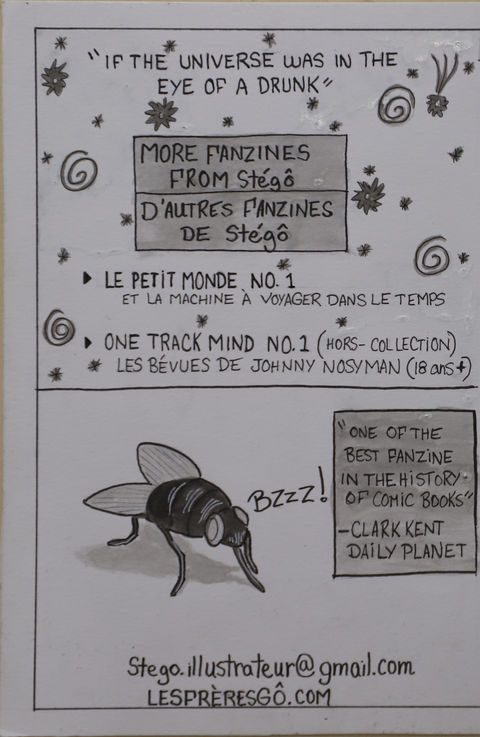 "IF THE UNIVERSE WAS IN THE
EYE OF A DRUNK"
MORE FANZINES
FROM Stégô
D'AUTRES FANZINES
DE Stégô
LE PETIT MONDE NO. 1
ET LA MACHINE À VOYAGER DANS LE TEMPS
ONE TRACK MIND NO. 1 (HORS-COLLECTION)
LES BÉVUES DE JOHNNY NOSYMAN (18 ans +)
BZZZ!
"ONE OF THE
BEST FANZINE
IN THE HISTORY
OF COMIC BOOKS"
-CLARK KENT
DAILY PLANET
Stego.illustrateur@gmail.com
LESFRÈRESGÔ.COM